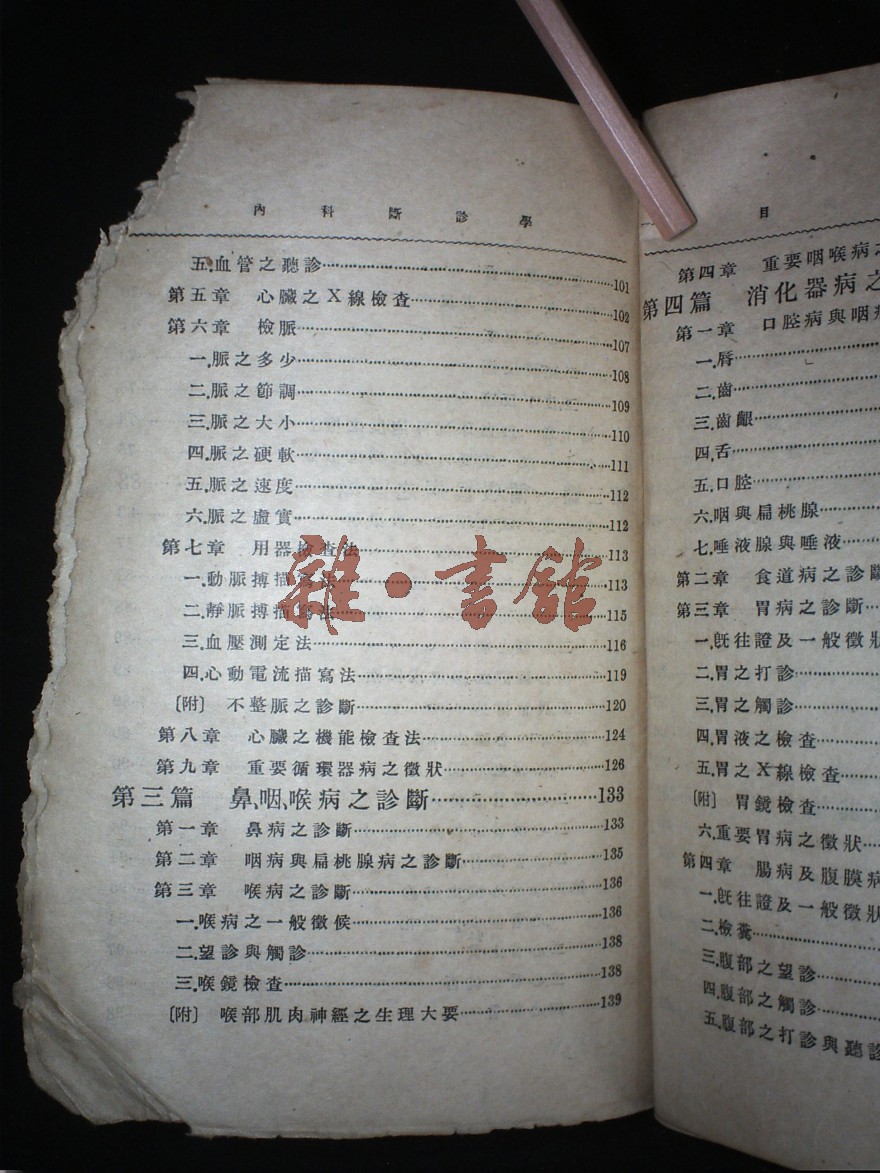 內科斷診學
五.血管之聽診 101
第五章 心臟之X線檢查 102
第六章 檢脈 107
一.脈之多少 108
二.脈之節調 109
三.脈之大小 110
四.脈之硬軟 111
五.脈之速度 112
六.脈之虛實 112
第七章 用器檢查法 113
一.動脈搏描寫法 113
二.靜脈搏描寫法 115
三.血壓測定法 116
四.心動電流描寫法 119
〔附〕 不整脈之診斷 120
第八章 心臟之機能檢查法 124
第九章 重要循環器病之徵狀 126
第三篇 鼻、咽、喉病之診斷 133
第一章 鼻病之診斷 133
第二章 咽病與扁桃腺病之診斷 135
第三章 喉病之診斷 136
一.喉病之一般徵候 136
二.望診與觸診 138
三.喉鏡檢查 138
〔附〕 喉部肌肉神經之生理大要 139
雜·書館
目
第四章 重要咽喉病之
第四篇 消化器病之
第一章 口腔病與咽
一.唇
二.齒
三.齒齦
四.舌
五.口腔
六.咽與扁桃腺
七.唾液腺與唾液
第二章 食道病之診斷
第三章 胃病之診斷
一.旣往證及一般徵狀
二.胃之打診
三.胃之觸診
四.胃液之檢查
五.胃之X線檢查
〔附〕 胃鏡檢查
六.重要胃病之徵狀
第四章 腸病及腹膜病
一.旣往證及一般徵狀
二.檢糞
三.腹部之望診
四.腹部之觸診
五.腹部之打診與聽診